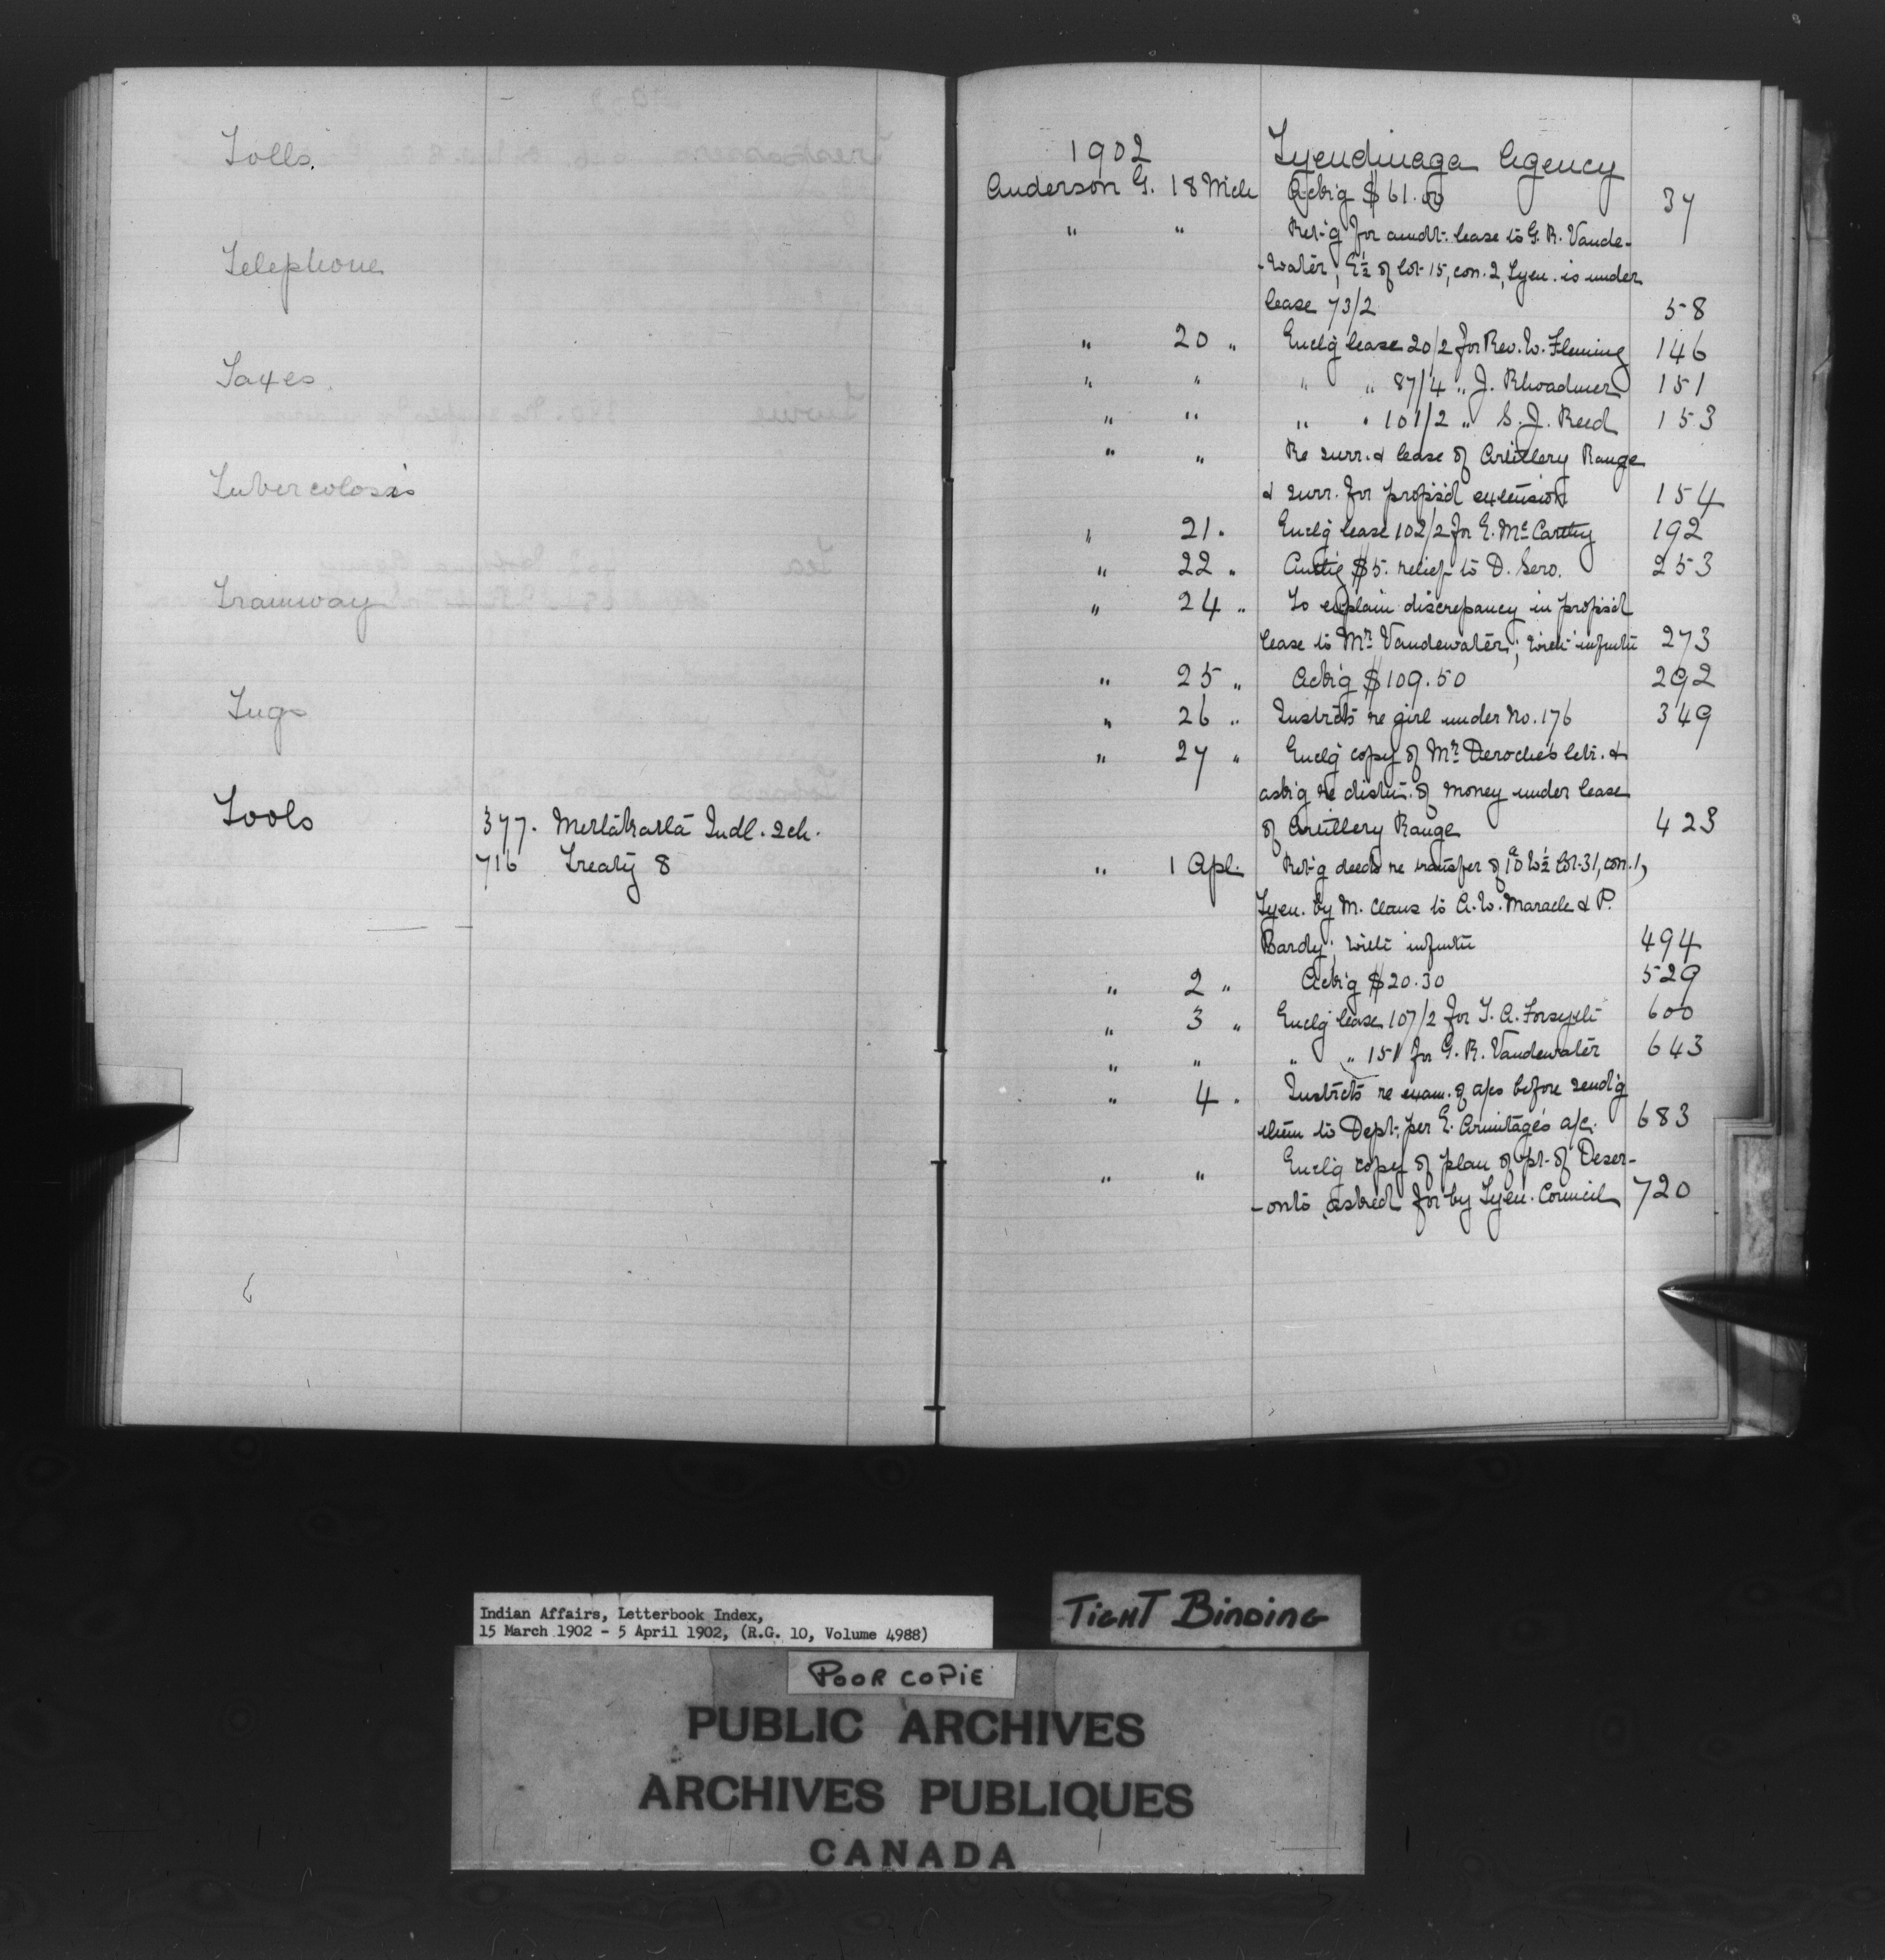 Tolls.
Telephone
Taxes.
Tubercolosis
Tramway
Tugs
Tools
377. Metlakatla Indl. Sch.
716 Treaty 8
1902 Tyendinaga Agency
Anderson G. 18 Mch Ackg $61.00 37
" " Ret-g for amdt. lease to G. R. Vande-
-water; E½ of lot 15, con. 2, Tyen. is under
lease 73/2 58
" 20 " Enclg lease 20/2 for Rev. W. Fleming 146
" " " " 87/4 " J. Rhoadmer 151
" " " " 101/2 " S. J. Reed 153
" " Re surr. & lease of Artillery Range
& surr. for propos'd extension 154
" 21 " Enclg lease 102/2 for E. McCarthy 192
" 22 " Authg $5. relief to D. Sero. 253
" 24 " To explain discrepancy in propos'd
lease to Mr. Vandewater; with infmtn 273
" 25 " Ackg $109.50 292
" 26 " Instrcts re girl under No. 176 349
" 27 " Enclg copy of Mr. Deroche's letr. &
askg re distn. of money under lease
of Artillery Range 423
" 1 Apl. Ret-g deeds re transfer of W½ lot 31, con. 1,
Tyen. by M. Claus to A. W. Maracle & P.
Bardy; with infmtn 494
" 2 " Ackg $20.30 529
" 3 " Enclg lease 107/2 for T. A. Forsyth 600
" " " " 151 for G. R. Vandewater 643
" 4 " Instrcts re exam. of a/cs before send'g
them to Dept. per E. Armitage's a/c. 683
" " Enclg copy of plan of pt. of Deser-
-onto asked for by Tyen. Council 720
Indian Affairs, Letterbook Index,
15 March 1902 - 5 April 1902, (R.G. 10, Volume 4988)
TIGHT BINDING
POOR COPIE
PUBLIC ARCHIVES
ARCHIVES PUBLIQUES
CANADA